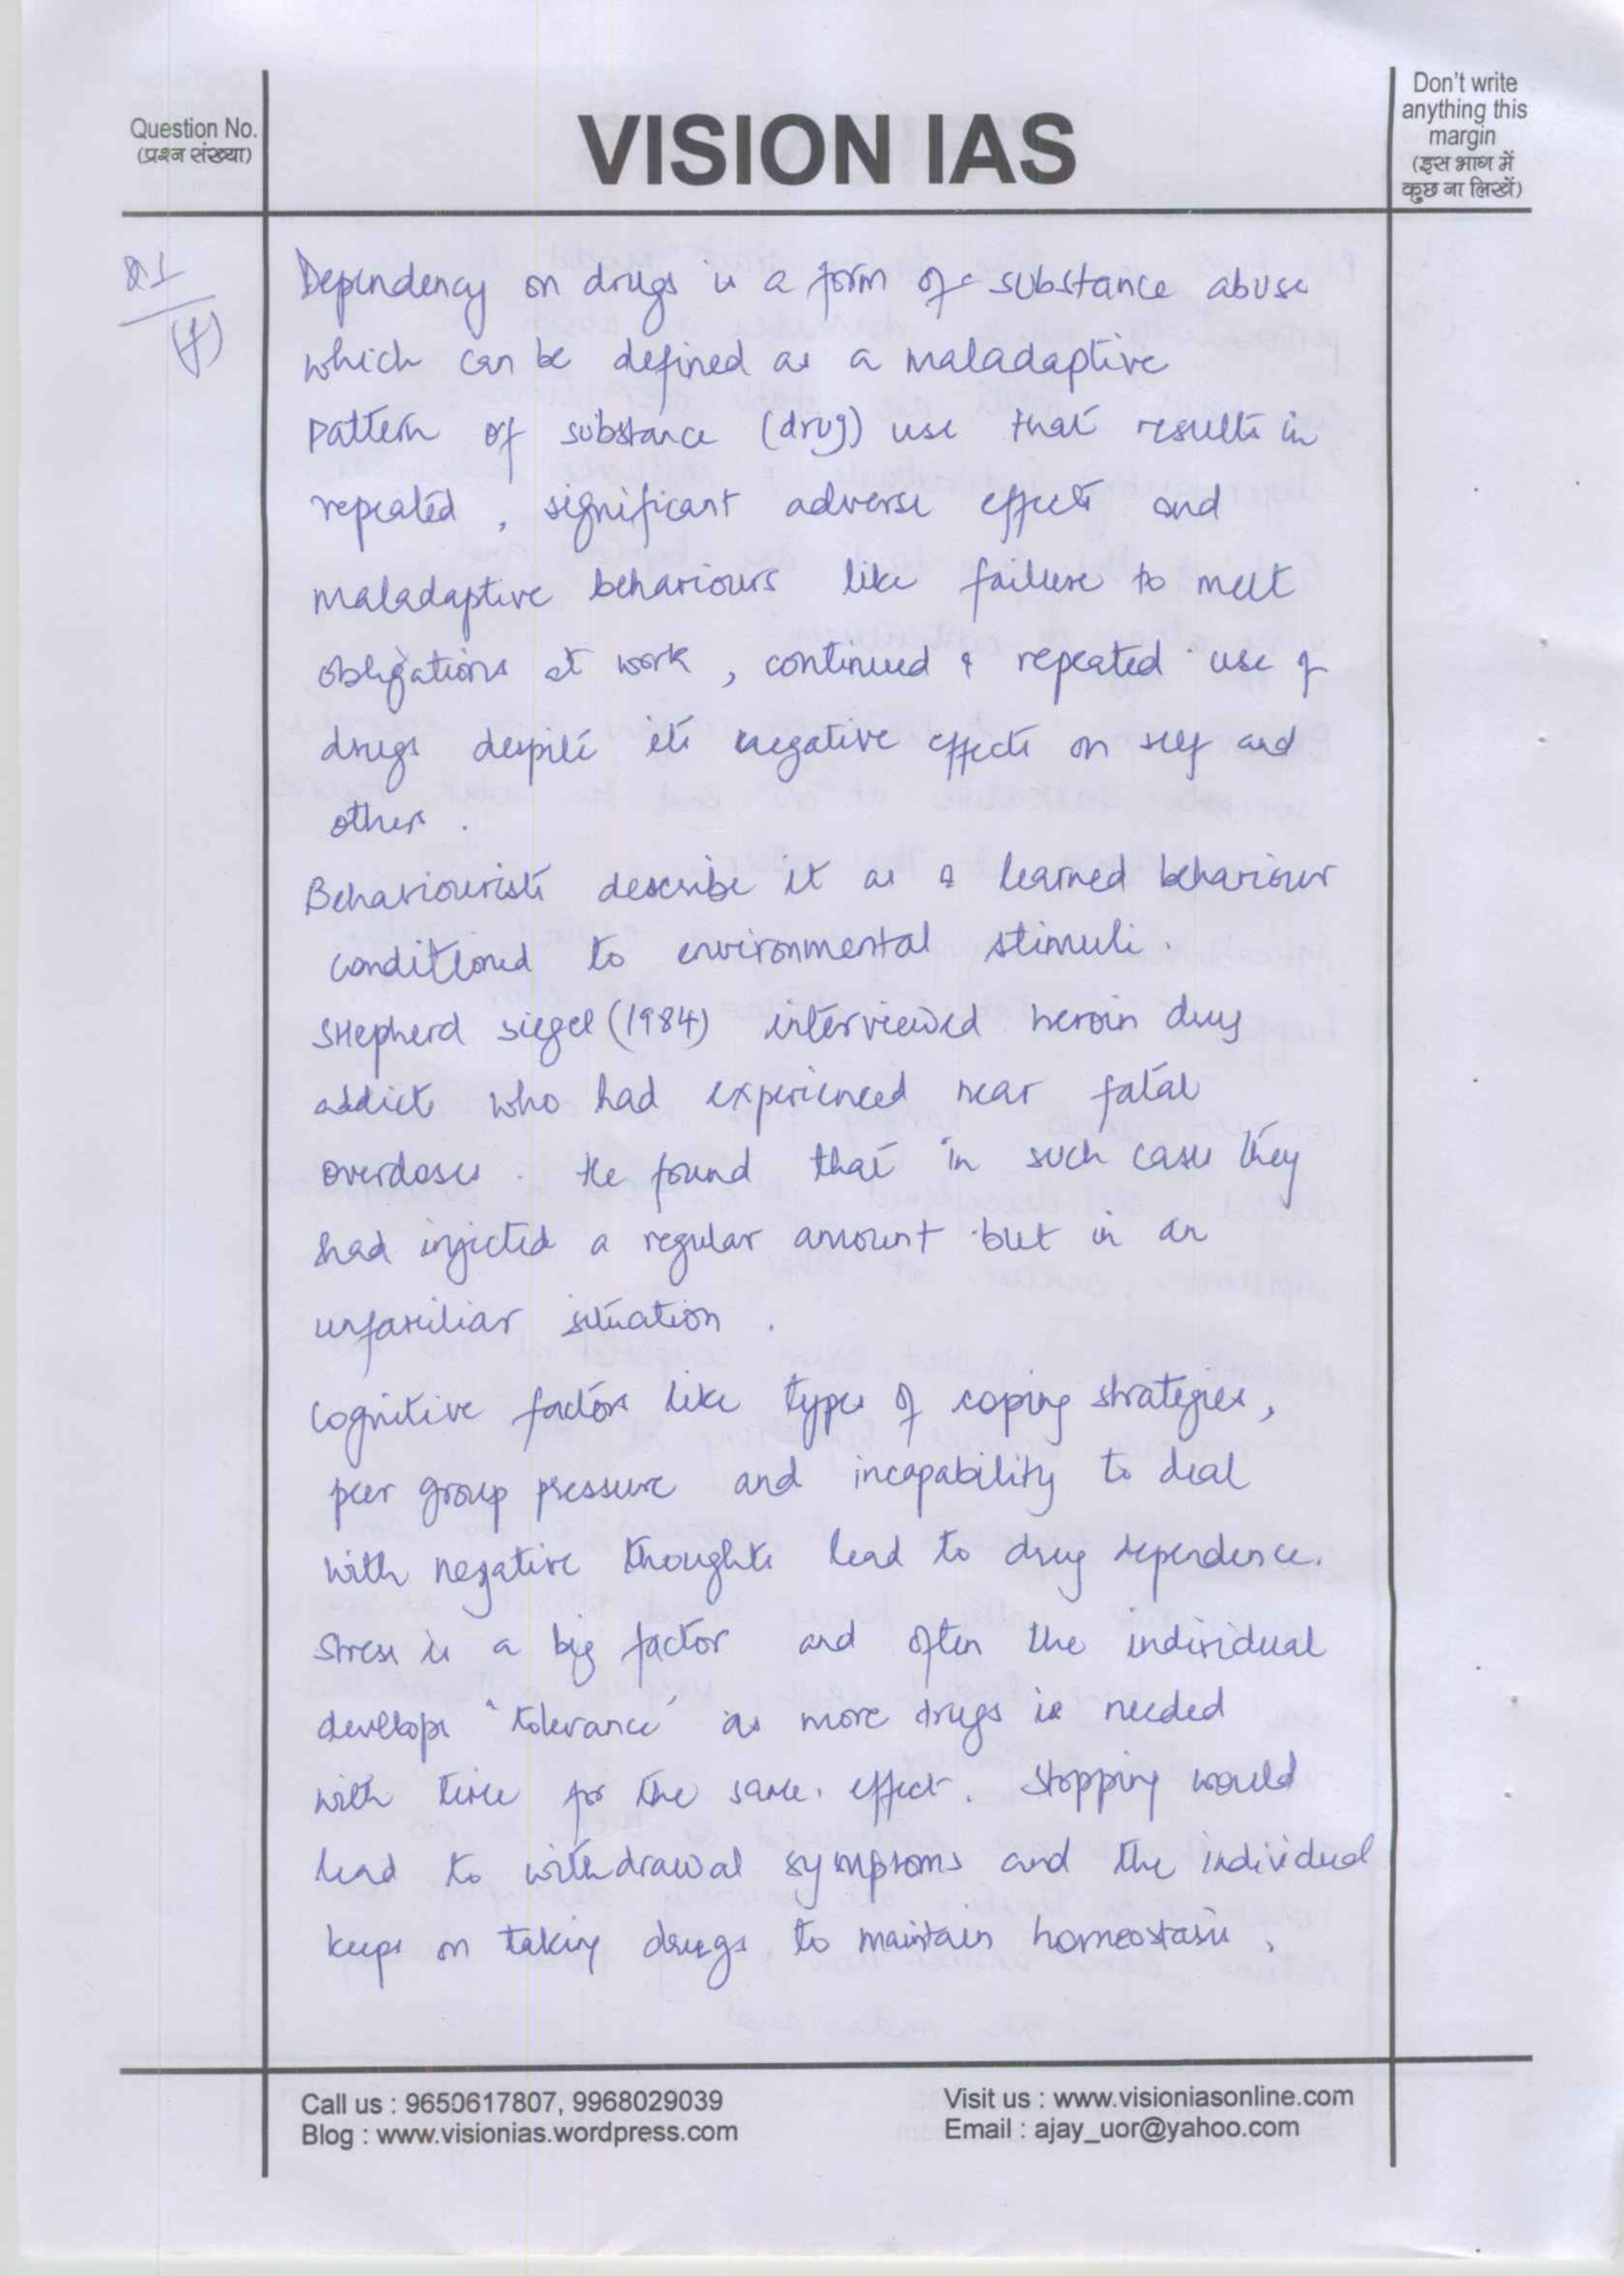 Question No.
(प्रश्न संख्या)
VISION IAS
Don't write
anything this
margin
(इस भाग में
कुछ ना लिखें)
Q1
(f)
Dependency on drugs is a form of substance abuse
which can be defined as a maladaptive
pattern of substance (drug) use that results in
repeated, significant adverse effects and
maladaptive behaviours like failure to meet
obligations at work, continued & repeated use of
drugs despite its negative effects on self and
others.
Behaviourists describe it as a learned behaviour
conditioned to environmental stimuli.
Shepherd Siegel (1984) interviewed heroin drug
addicts who had experienced near fatal
overdoses. He found that in such cases they
had injected a regular amount but in an
unfamiliar situation.
Cognitive factors like types of coping strategies,
peer group pressure and incapability to deal
with negative thoughts lead to drug dependence.
Stress is a big factor and often the individual
develops 'tolerance' as more drugs is needed
with time for the same effect. Stopping would
lead to withdrawal symptoms and the individual
keeps on taking drugs to maintain homeostasis.
Call us : 9650617807, 9968029039
Blog : www.visionias.wordpress.com
Visit us : www.visioniasonline.com
Email : ajay_uor@yahoo.com